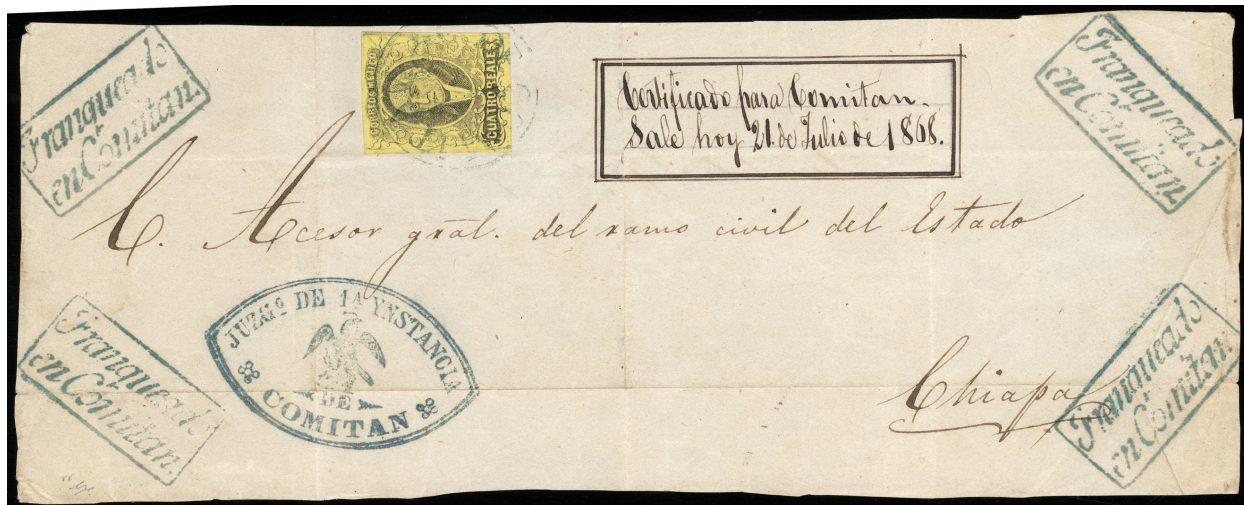 Franqueado
en Comitan.
CORREOS MEJICO
CUATRO REALES
Certificado para Comitan.
Sale hoy 21. de Julio de 1868.
Franqueado
en Comitan.
C. Acesor gral. del ramo civil del Estado
JUZGº DE 1ª YNSTANCIA
DE
COMITAN
Chiapa
Franqueado
en Comitan.
Franqueado
en Comitan.